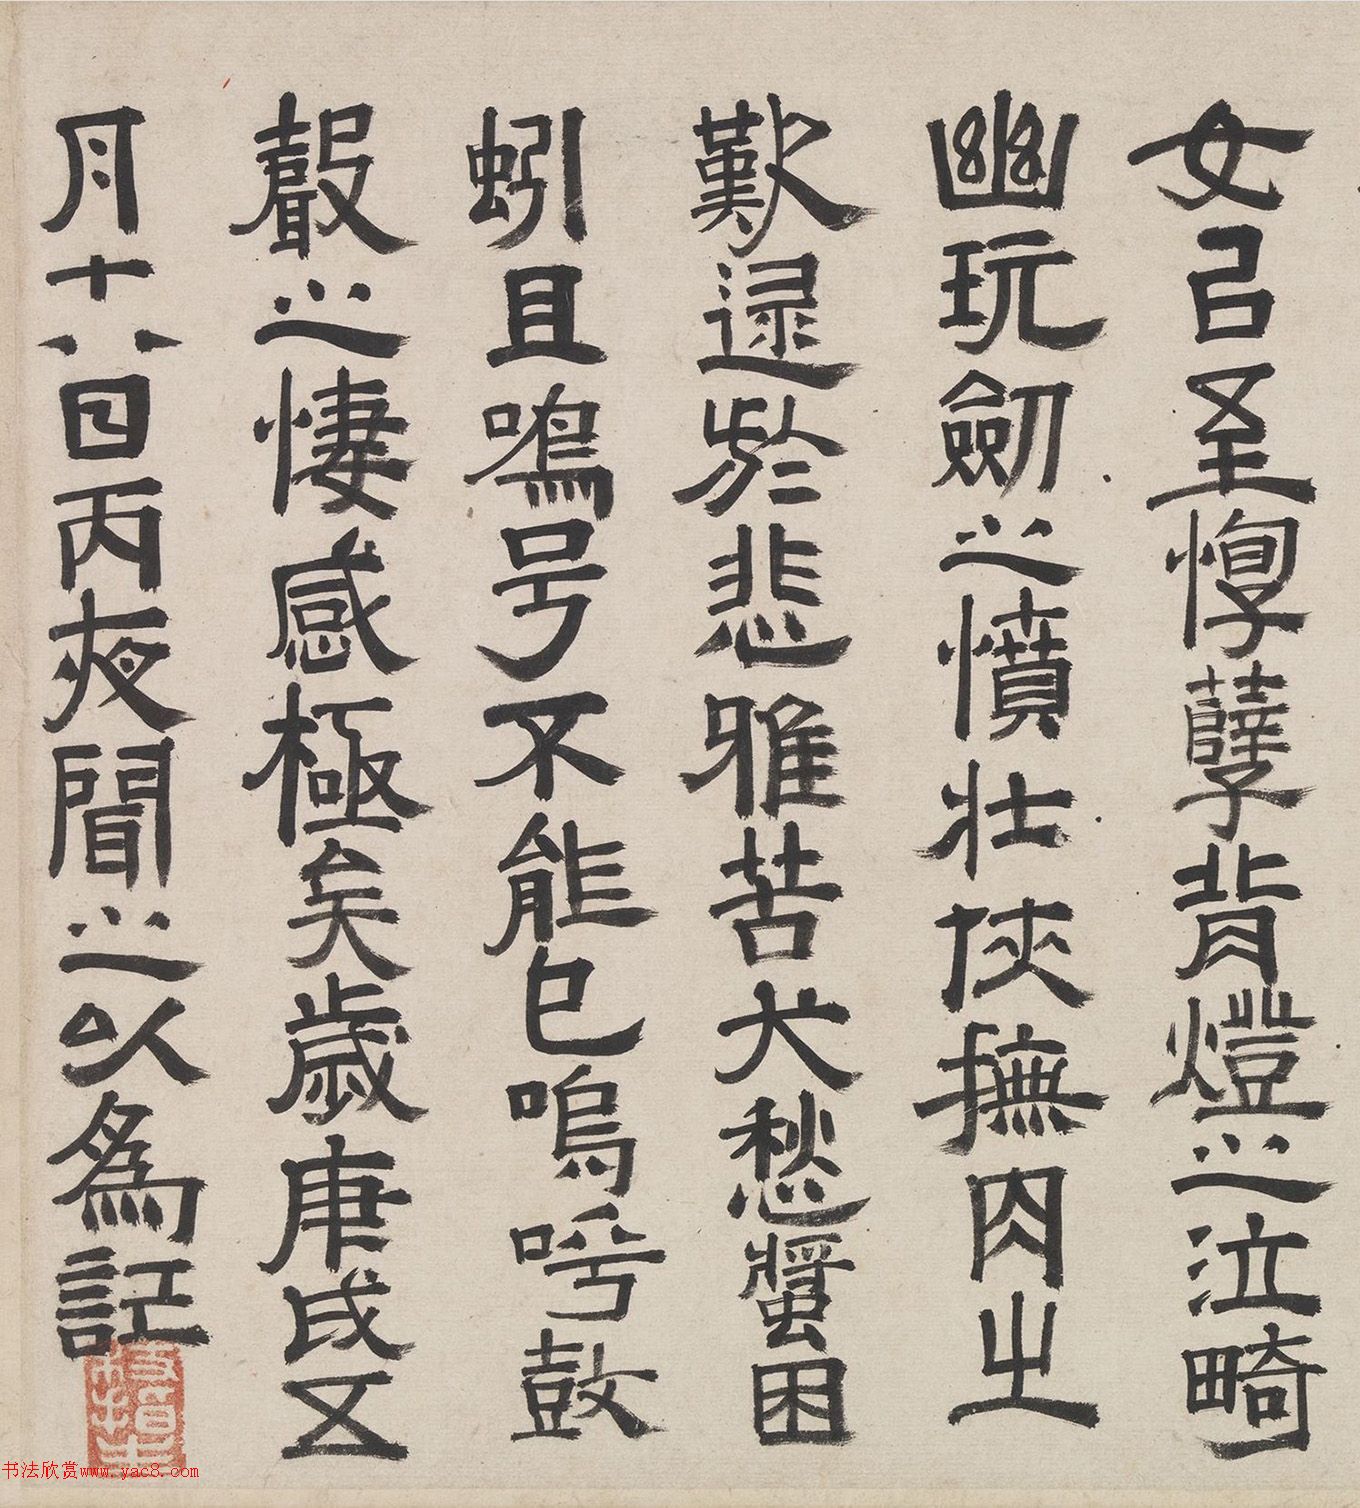 女以至惸孽背燈之泣畸
幽玩劍之憤壯俠撫肉㞢
歎逯於悲雅苦犬愁螿困
蚓且鳴号不能已嗚呼鼓
聲之悽感極矣歲庚戌五
月十八日丙夜聞之以為記
书法欣赏www.yac8.com